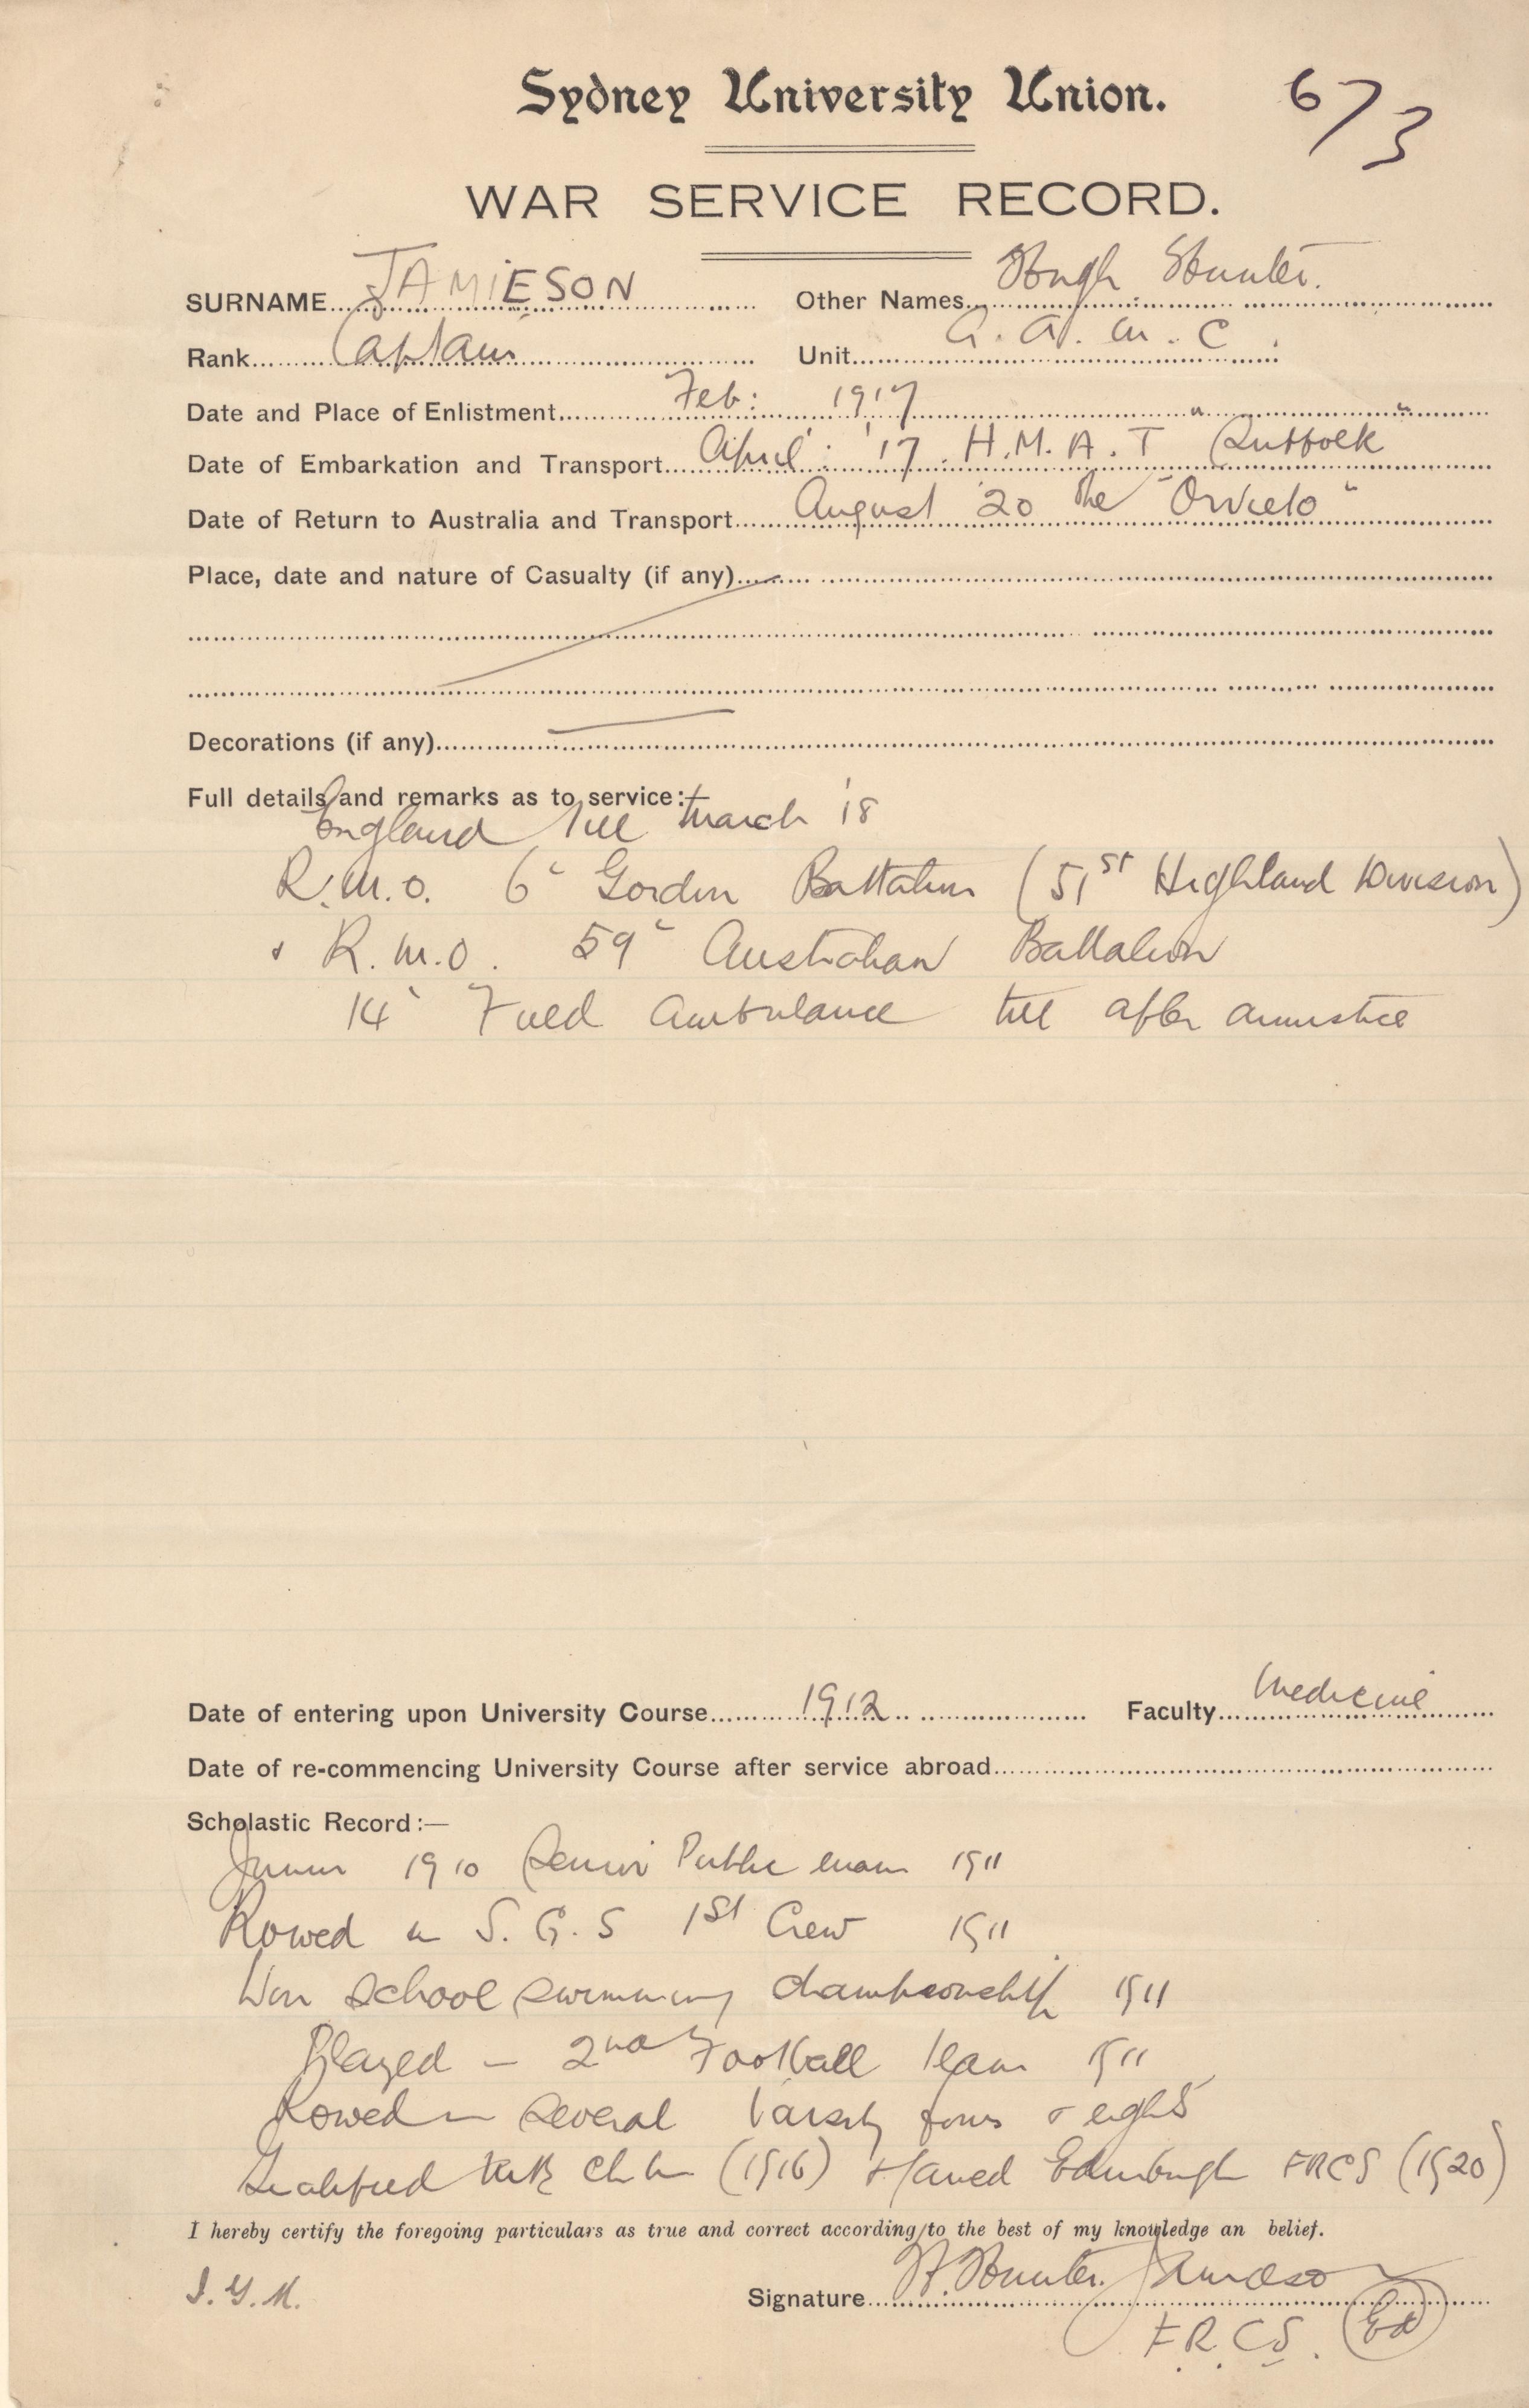 Sydney University Union. 673
WAR SERVICE RECORD.
SURNAME JAMIESON Other Names Hugh Hunter.
Rank Captain Unit A. A. M. C.
Date and Place of Enlistment Feb: 1917
Date of Embarkation and Transport April : '17. H.M.A.T "Suffolk"
Date of Return to Australia and Transport August '20 the "Orvieto"
Place, date and nature of Casualty (if any)
Decorations (if any)
Full details and remarks as to service:—
England till March '18
R.M.O. 6th Gordon Battalion (51st Highland Division)
& R.M.O. 59th Australian Battalion
14th Field Ambulance till after armistice
Date of entering upon University Course 1912 Faculty Medicine
Date of re-commencing University Course after service abroad
Scholastic Record:—
Junior 1910 Senior Public exam 1911
Rowed in S.G.S 1st Crew 1911
Won school swimming championship 1911
Played in 2nd Football team 1911
Rowed in several Varsity fours & eights
Qualified M.B. Ch.M (1916) Edinburgh FRCS (1920)
I hereby certify the foregoing particulars as true and correct according to the best of my knowledge an belief.
J.G.M. Signature H. Hunter Jamieson
F.R.C.S. (Ed)